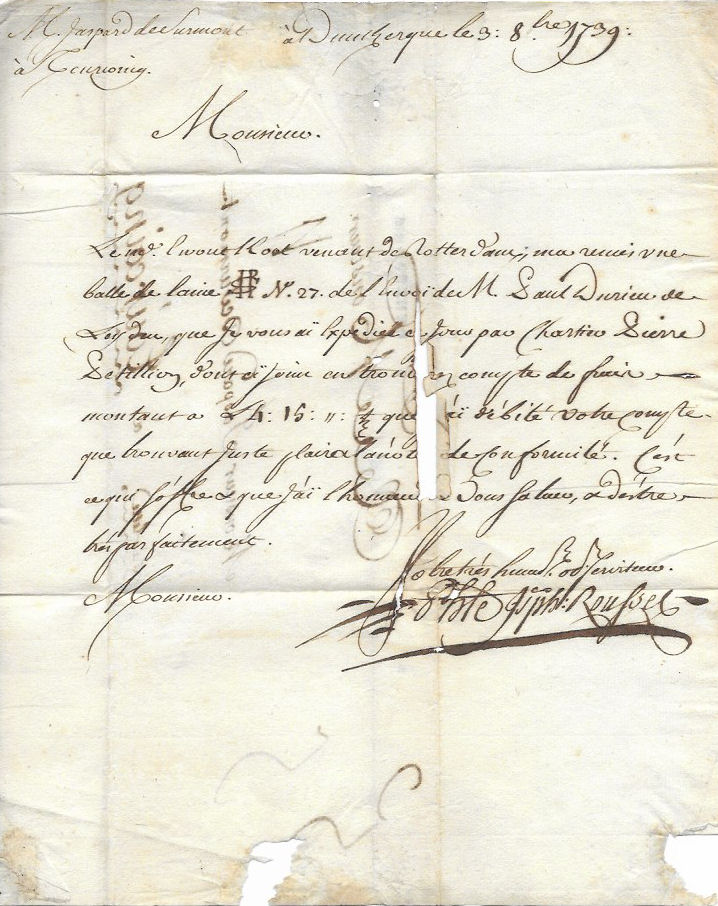 M. Jaspard de Surmont à Dunkerque le 3: 8bre 1739:
à Tourcoing.
Monsieur.
Le md. Root venant de Rotterdam; ma remis vne
balle de laine N°. 27. de l'Envoï du M. Paul Durieu de
Leyden, que Je vous aï Expediée ce Jour par Chartier Pierre
, dont cy Joint en trouverez compte de fraix
montant a £ 4: 15: 11: que J'äï débité votre compte
que trouvant Juste plaira de Conformité. C'est
ce qui s'offre & que J'äï l'honneur Vous saluer, & d'éstre
trés parfaitement.
Monsieur.
Votre trés humb. & ob. serviteur.
Jph: Rousset